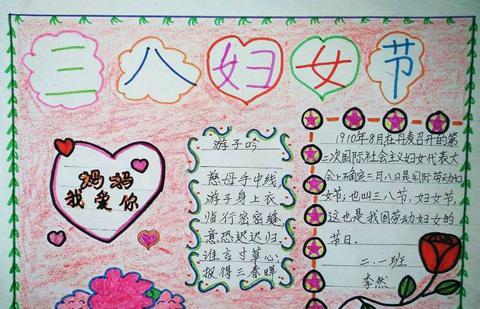 三八妇女节
妈妈
我爱你
游子吟
慈母手中线,
游子身上衣
临行密密缝
意恐迟迟归.
谁言寸草心
报得三春晖
1910年8月在丹麦召开的第
二次国际社会主义妇女代表大
会上确定三月八日是国际劳动妇
女节,也叫三八节,妇女节,
这也是我国劳动妇女的
节日.
二.一班
李然